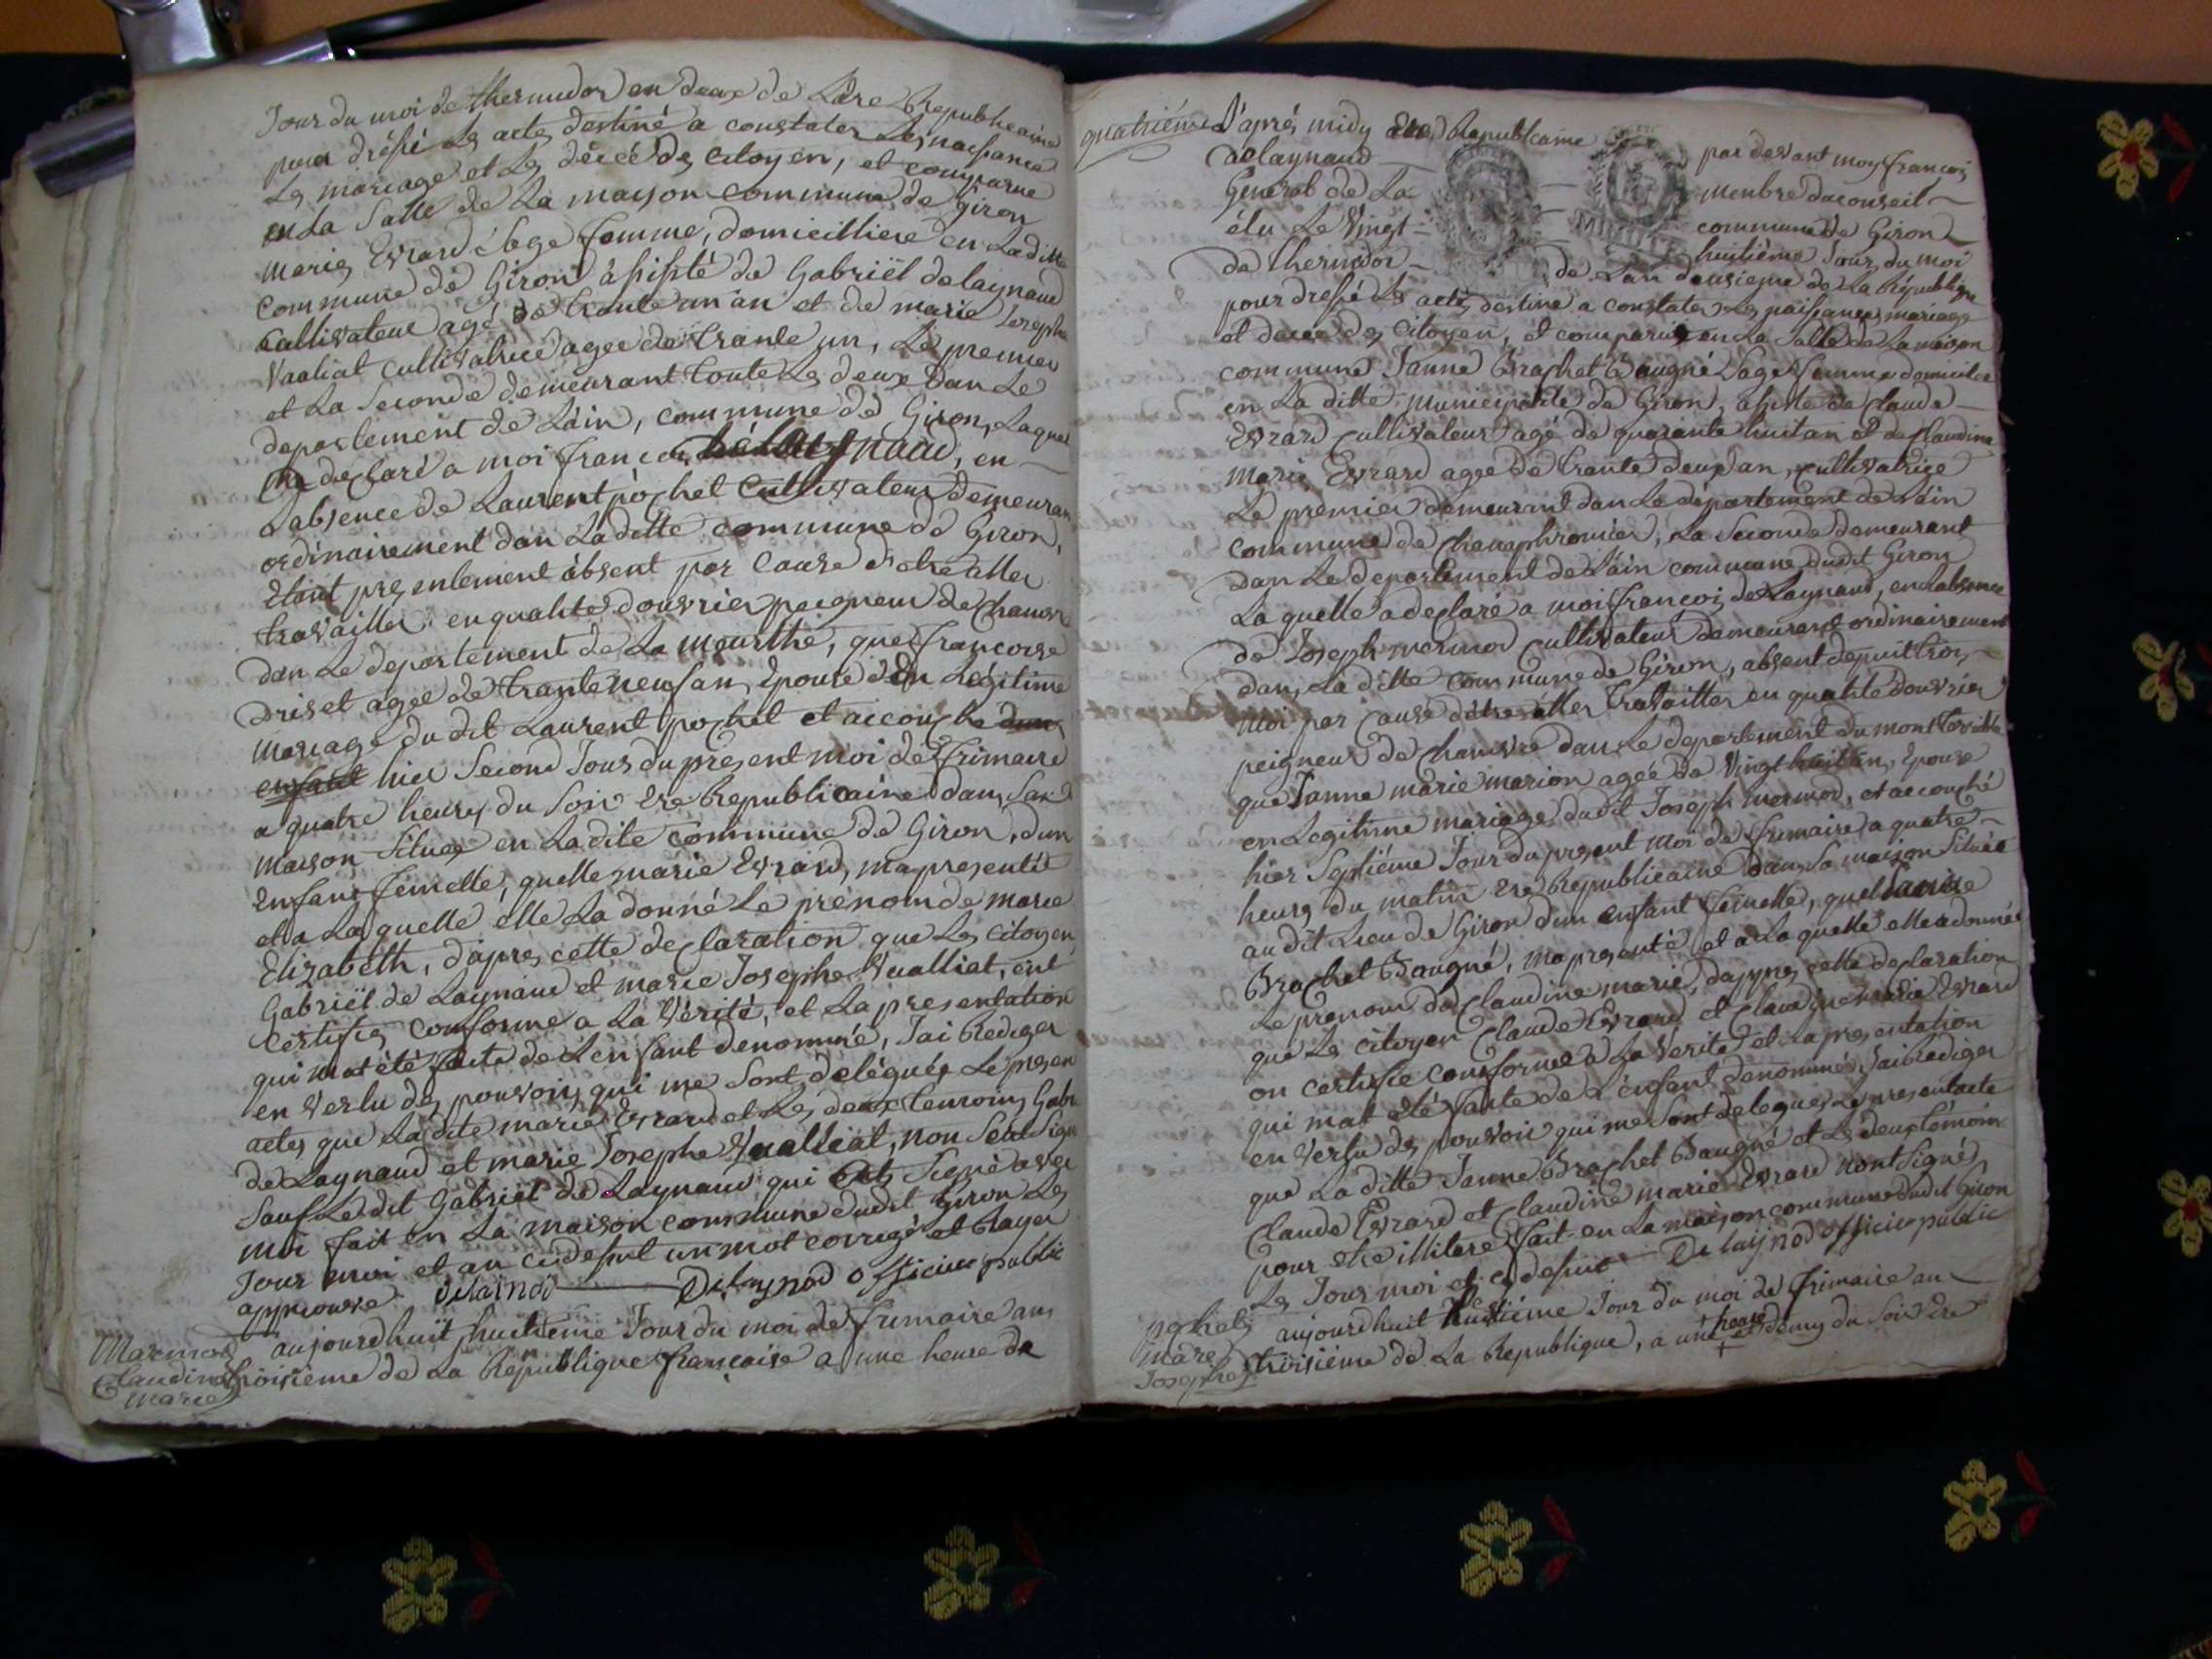 Jour du moi de thermidor en deux de Lére Republicaine
pour dréssé Les actes destiné a constater Les naissance
Les mariage et Les déccé des Citoyen, et comparue
en La Salle de La maison commune de giron
marie Evrard Sage femme, domicilliere en Laditte
Commune de Giron assisté de Gabriël delaynaud
Cultivateur agé de trante un an et de marie Josephe
Vualliat cultivatrice agee de trante un, Le premier
et La Seconde demeurant toute Les deux dan Le
departement de L'ain, commune de Giron, Laquel
a declaré a moi françoi delaynaud, en
Labsence de Laurent pochet Cultivateur demeuran
ordinairement dan Laditte commune de Giron,
Etant presentement absent par Cause d'etre aller
travailler en qualité douvrier peigneur de chanvr
dan Le departement de La meurthe, que francoise
Driset agée de trante neuf an, Epouse den Légitime
mariage du dit Laurent pochet et accouche dun
enfant hier Second Jour du présent moi de frimaire
a quatre heures du Soir Ere Republicaine dans Sa
maison Situee en Ladite commune de Giron, dun
Enfant femelle, quelle marie Evrard, ma presenté
et a Laquelle elle La donné Le prénom de marie
Elizabeth, dapres cette declaration que Les citoyen
Gabriël de Laynaud et marie Josephe Vualliat, ont
Certifies conforme a La Vérité, et La presentation
qui mat été faite de Lenfant denommé, Jai Rediger
en vertu des pouvoirs qui me Sont délégués Le presen
actes que Ladite marie Evrard et Les deux temoins Gabr
de Laynaud et marie Josephe Vualliat, non Seul Signé
Sauf Le dit Gabriel de Laynaud qui Et Signé avec
moi fait en La maison commune dudit Giron Les
Jour moi et an cy desut un mot corrigé et Rayer
approuvé delainod Delaynod officier public
Mermod
Claudine
Marie
aujourdhuit huitieme Jour du moi de frimaire an
troisieme de La Republique française a une heure de
quatriéme
D'aprés midy Ere Republicaine par devant moy françoi
delaynaud menbre du conseil
General de La commune de Giron
élu Le Vingt huitiéme Jour du moi
de thermidor de Lan deusieme de La République
pour dressé Les actes destiné a constater Les naissances mariage
et décée des Citoyen, et comparue en La Salle de La maison
commune Janne Brachet Baugné Sage femme domicilie
en La ditte municipalité de Giron, assisté de Claude
Evrard Cultivateur agé de quarante huit an et de Claudine
Marie Evrard agee de trante deux an, cultivatrice
Le premier demeurant dan Le département de Lain
Commune de , La Seconde demeurant
dan Le departement de Lain commune dudit Giron
La quelle a declaré a moi françoi de Laynaud, en Labsence
de Joseph mermod Cultivateur demeurant ordinairement
dan, La ditte commune de Giron, absent depuit troi
moi par cause detre aller Travailler en qualité douvrier
peigneur de chanvre dans Le departement du mont terrible
que Janne marie marion agée de Vingt huit an, Epouse
en Legitime mariage dudit Joseph mermod, et accouché
hier Septiéme Jour du present moi de frimaire a quatre
heures du matin Ere Republicaine dans Sa maison Située
audit Lieu de Giron dun enfant femelle, quel Janne
Brachet Baugné, ma presanté et a Laquelle elle a donnée
Le prenom de Claudine marie, dappres cette declaration
que Les citoyen Claude Evrard et Claudine marie Evrard
on certifie conforme a La Verité et La presentation
qui mat été faite de L'enfant denommé, Jai Rediger
en Vertu des pouvoir qui me Sont delegués Le present acte
que La ditte Janne Brachet Baugné et Les deux témoin
Claude Evrard et Claudine marie Evrard nont Signé
pour etre illitere fait en La maison commune dudit Giron
Les Jour moi et cy desuit De laynod officier public
pochet
marie
Josephe
aujourdhuit huitiéme Jour du moi de frimaire an
troisiéme de La Republique, a une heure et demy du Soir Ere